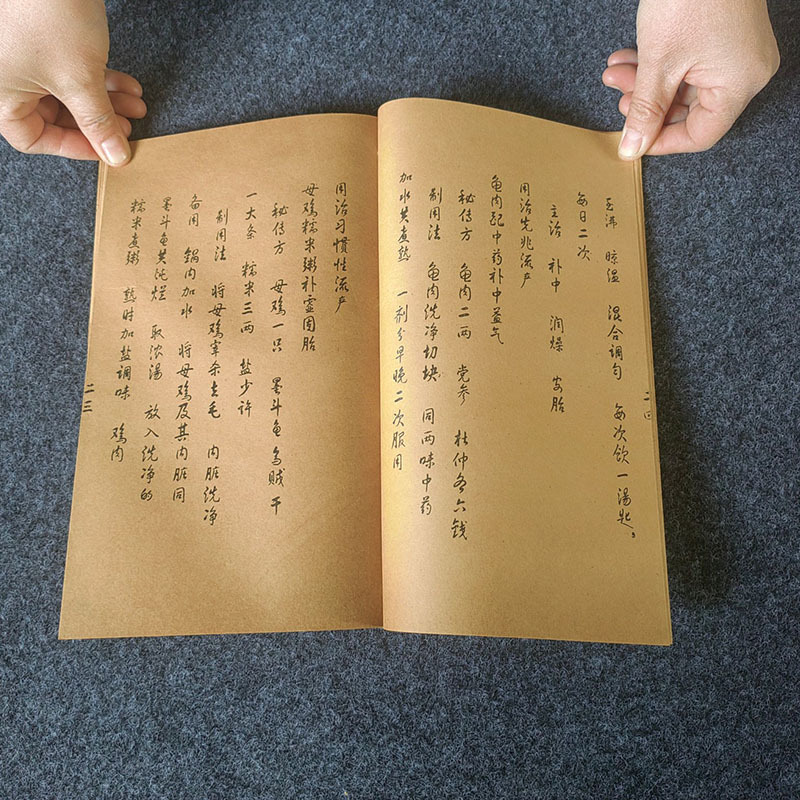 至沸 晾温 混合调匀 每次饮一汤匙。
每日二次
主治 补中 润燥 安胎
用治先兆流产
龟肉配中药补中益气
秘传方 龟肉二两 党参 杜仲各六钱
制用法 龟肉洗净切块 同两味中药
加水共煮熟 一剂分早晚二次服用
二四
用治习惯性流产
母鸡糯米粥补虚固胎
秘传方 母鸡一只 墨斗鱼乌贼干
一大条 糯米三两 盐少许
制用法 将母鸡宰杀去毛 内脏洗净
备用 锅内加水 将母鸡及其内脏同
墨斗鱼共炖烂 取浓汤 放入洗净的
糯米煮粥 熟时加盐调味 鸡肉
二三